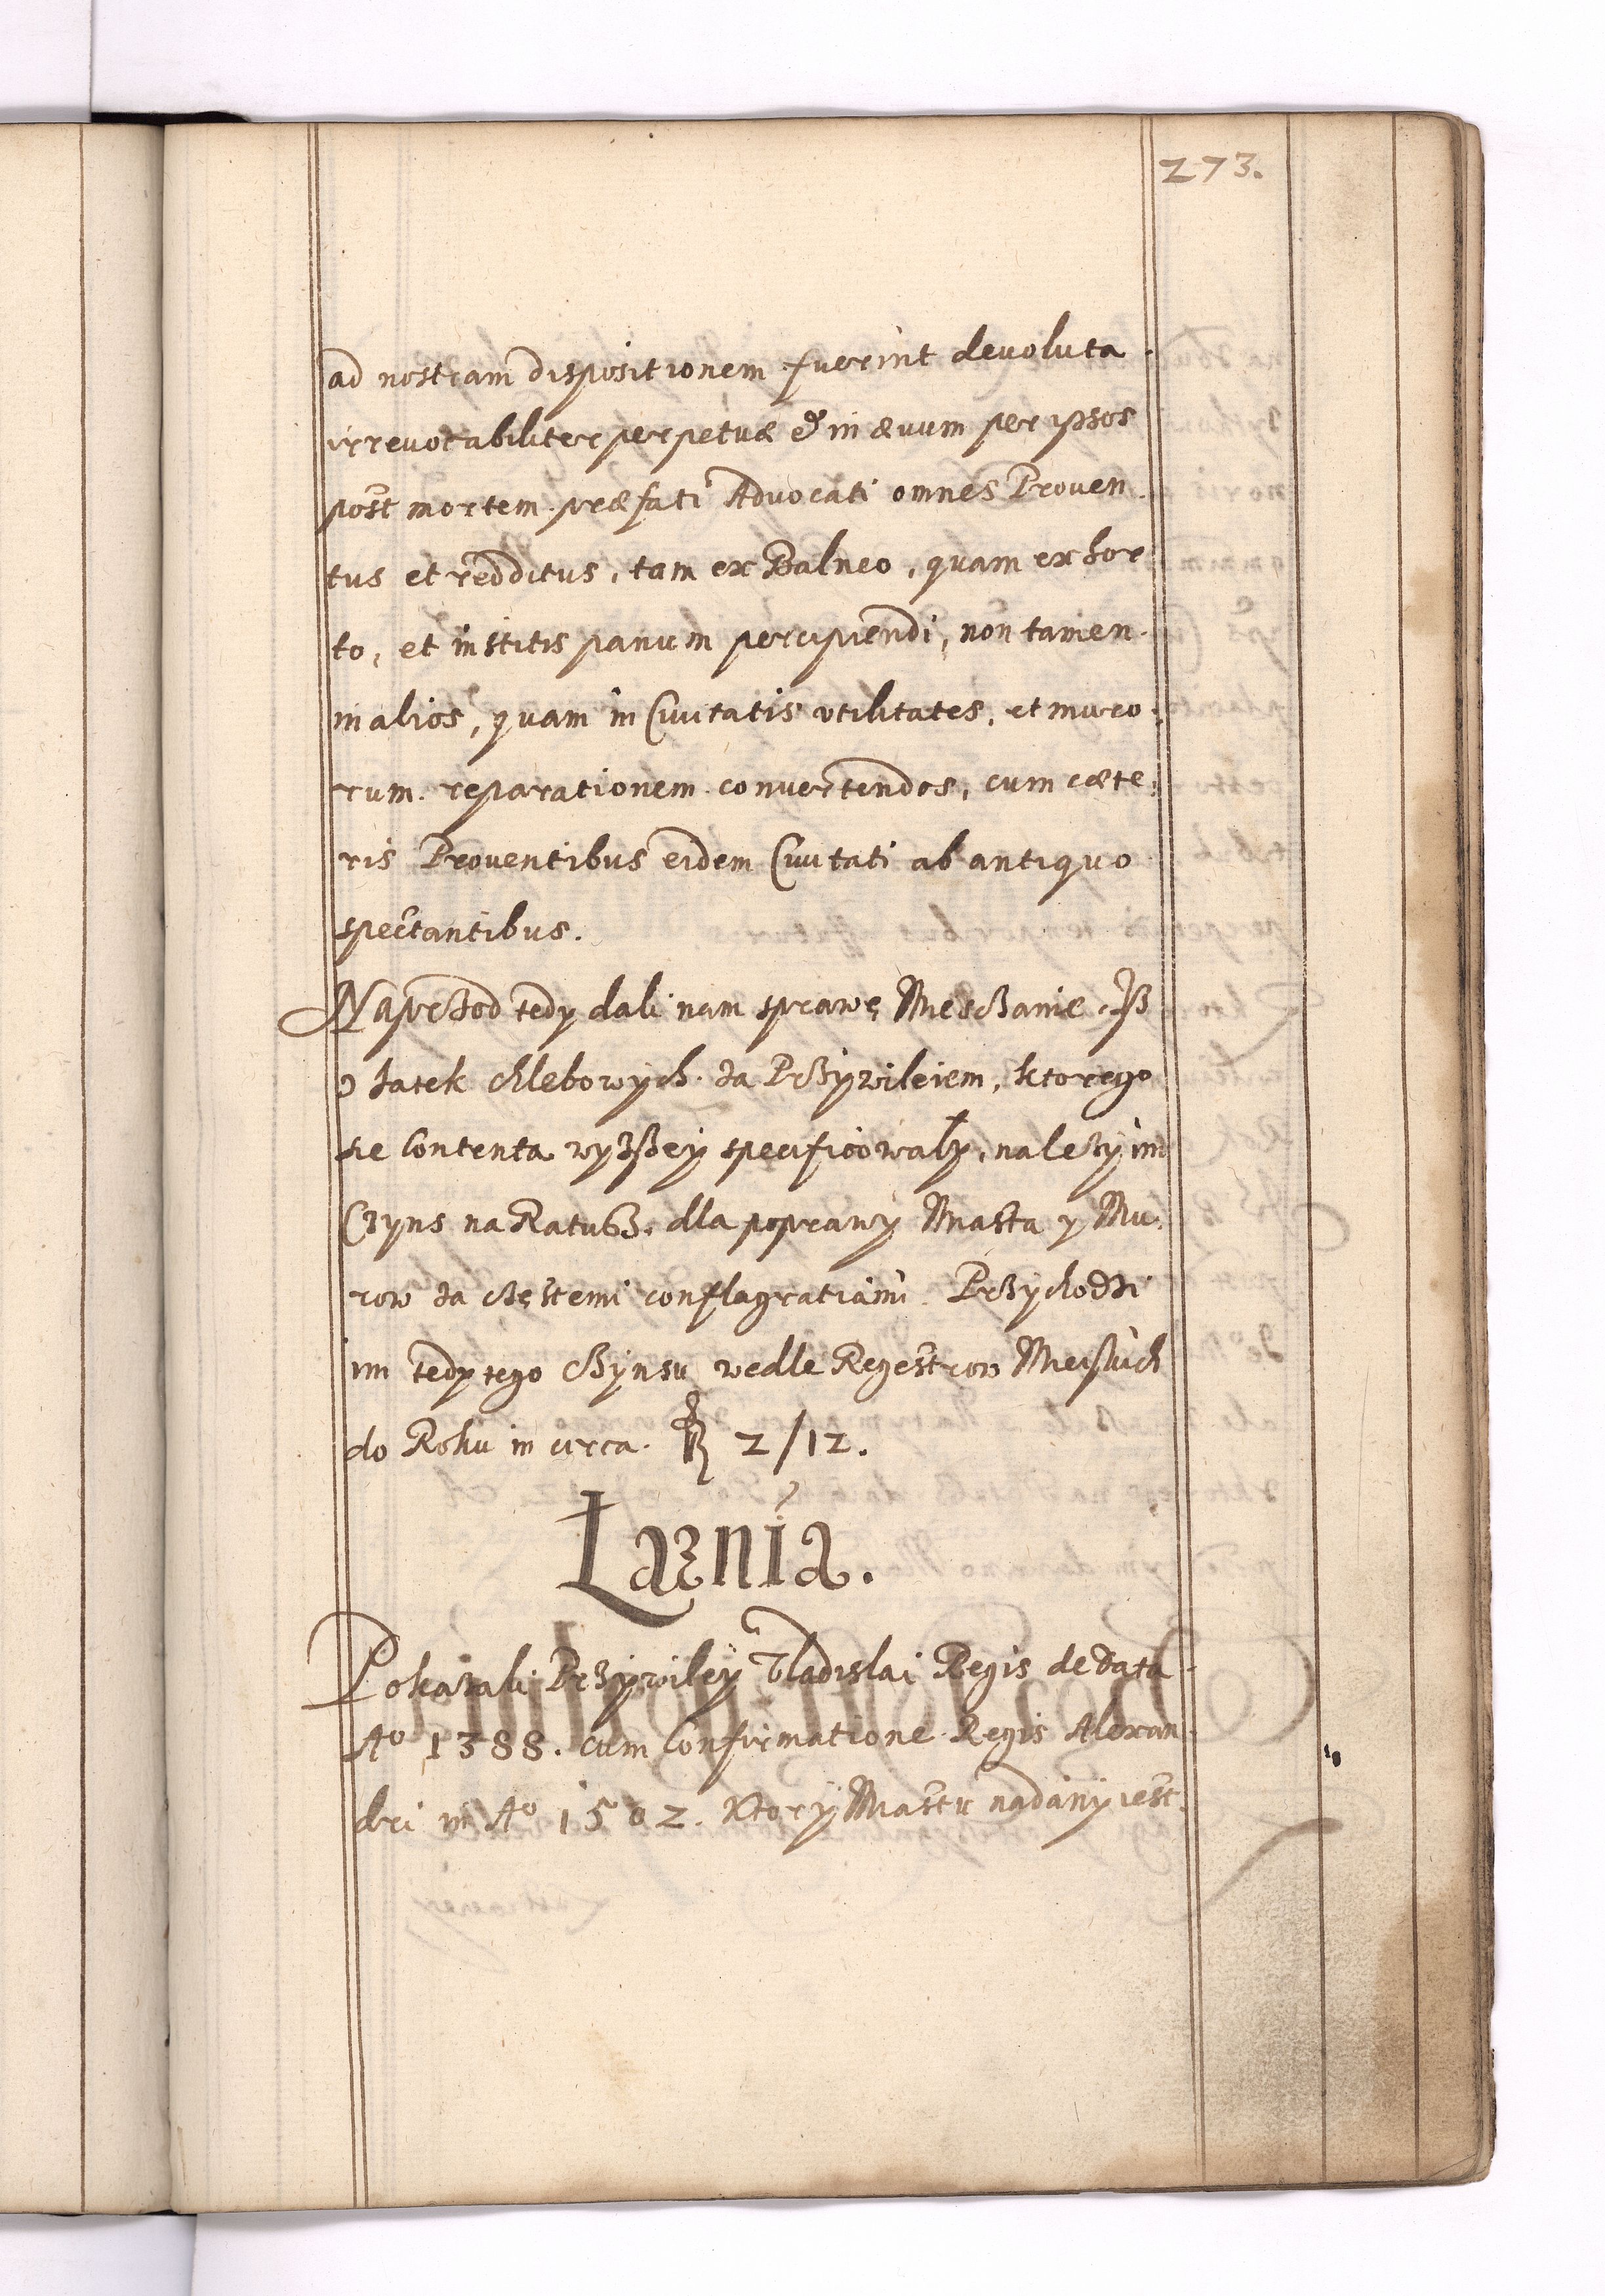 273.
ad nostram dispositionem fuerint devoluta
irrevocabiliter perpetuæ & in ævum per ipsos
post mortem præfati Advocati omnes Proven
tus et redditus, tam ex Balneo, quam ex hor
to, et institis panum percipiendi, non tamen
in alios, quam in Civitatis vtilitates, et muro
rum reparationem convertendos, cum cæte
ris Proventibus eidem Civitati ab antiquo
spectantibus.
Naprzod tedy dali nam sprawę Mesczanie, Jß
z Jatek chlebowych za Przÿwileiem, ktorego
sie Contenta wyzßey specificowałÿ, nalezÿ im
Czyns na Ratusz, dla poprawÿ Miasta y Mu
row za częstemi conflagratiami Przÿchodzi
im tedy tego Czÿnsu wedle Regestrow Mieÿskich
do Roku in circa 2/12.
Łaznia.
Pokazali Przÿwiley Vladislai Regis de data
Aº 1388. cum Confirmatione Regis Alexan
dri in Aº 1502. Ktorÿ Miastu nadanÿ iest.